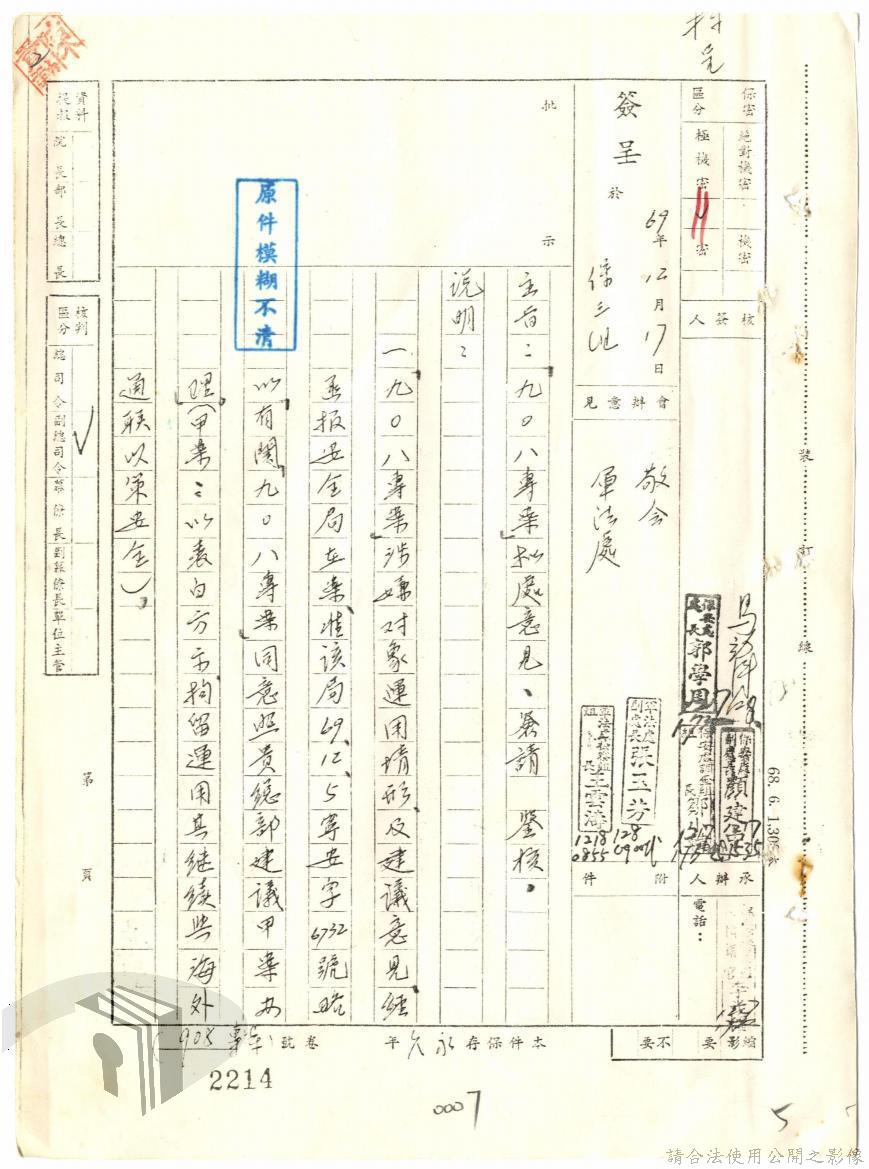 簽呈
於
69年12月17日
保三組
保密區分
絕對機密
極機密
機密
密
核簽人
會辦意見
敬会
軍法處
附件
承辦人
電話：
保安處處長郭學周
副處長張玉芳
王雲濤
1218
0855
128
0900
68. 6. 1.305本
裝
訂
線
批
示
原件模糊不清
主旨：「九0八專案」拟處意見、恭請　鑒核。
說明：
一、「九0八專案」涉嫌对象運用情形及建議意見經
呈报安全局在案、惟該局69、12、5寧安字6732號略
以「有關「九0八專案」同意照貴總部建議甲案办
理（甲案：以表白方示拘留運用其継續与海外
通联以策安全）」。
資料
院長
部長
總長
核判區分
總司令
副總司令
參謀長
副參謀長
單位主管
第　頁
本件保存永久年
卷號
908專案
縮影
要
不要
2214
0007
5
請合法使用公開之影像